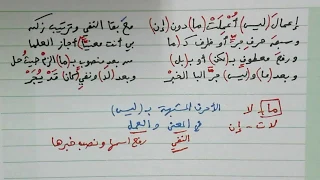 إعمال (ليس) أُعملت (ما) دون (إن) مع بقا النفي وترتيب زكن
وسبق حرف جرٍّ أو ظرفٍ كـ(ما بي أنت معنيًّا) أجاز العلما
ورفع معطوفٍ بـ(لكن) أو بـ(بل) من بعد منصوبٍ بـ(ما) الزم حيث حل
وبعد (ما) و(ليس) جرَّ البا الخبر وبعد (لا) ونفي (كان) قد يُجَرّ
ما - لا الأحرف المشبهة بـ (ليس)
لات - إن في المعنى والعمل
النفي رفع اسمها ونصب خبرها